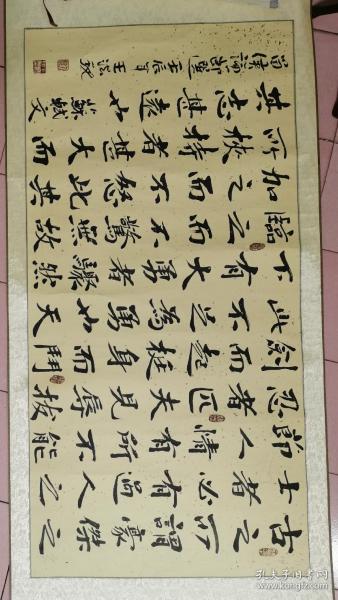 古之所謂豪傑之
士者必有過人之
節人情有所不能
忍者匹夫見辱拔
劍而起挺身而鬥
此不足為勇也天
下有大勇者驟然
臨之而不驚無故
加之而不怒此其
所挾持者甚大而
其志甚遠也 蘇軾文
留侯論節選 壬辰年 王洪
孔夫子旧书网